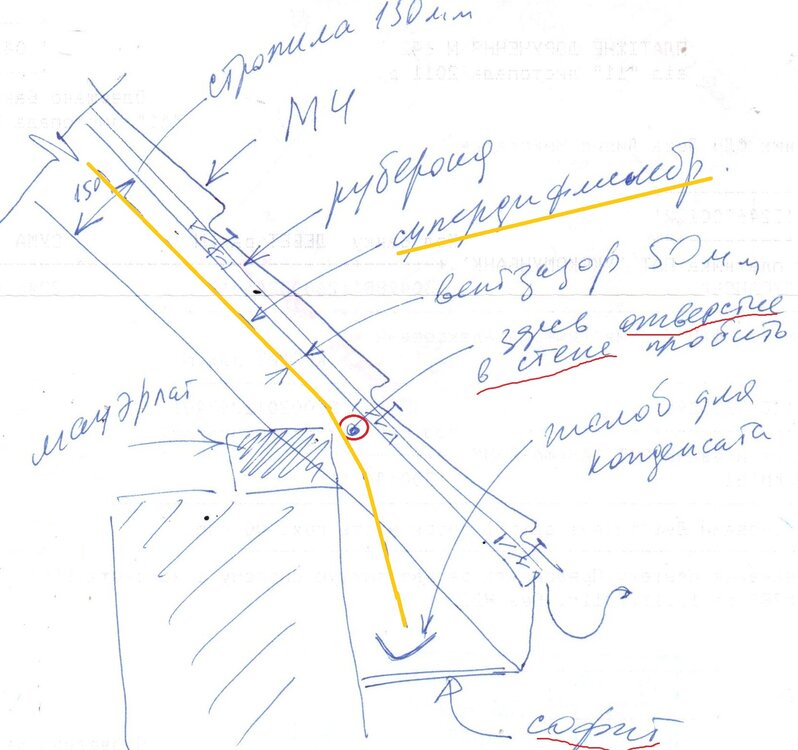 стропила 150мм
МЧ
рубероид
150
супердифмембр.
вентзазор 50мм
здесь отверстие
в стене пробить
мауэрлат
желоб для
конденсата
софит